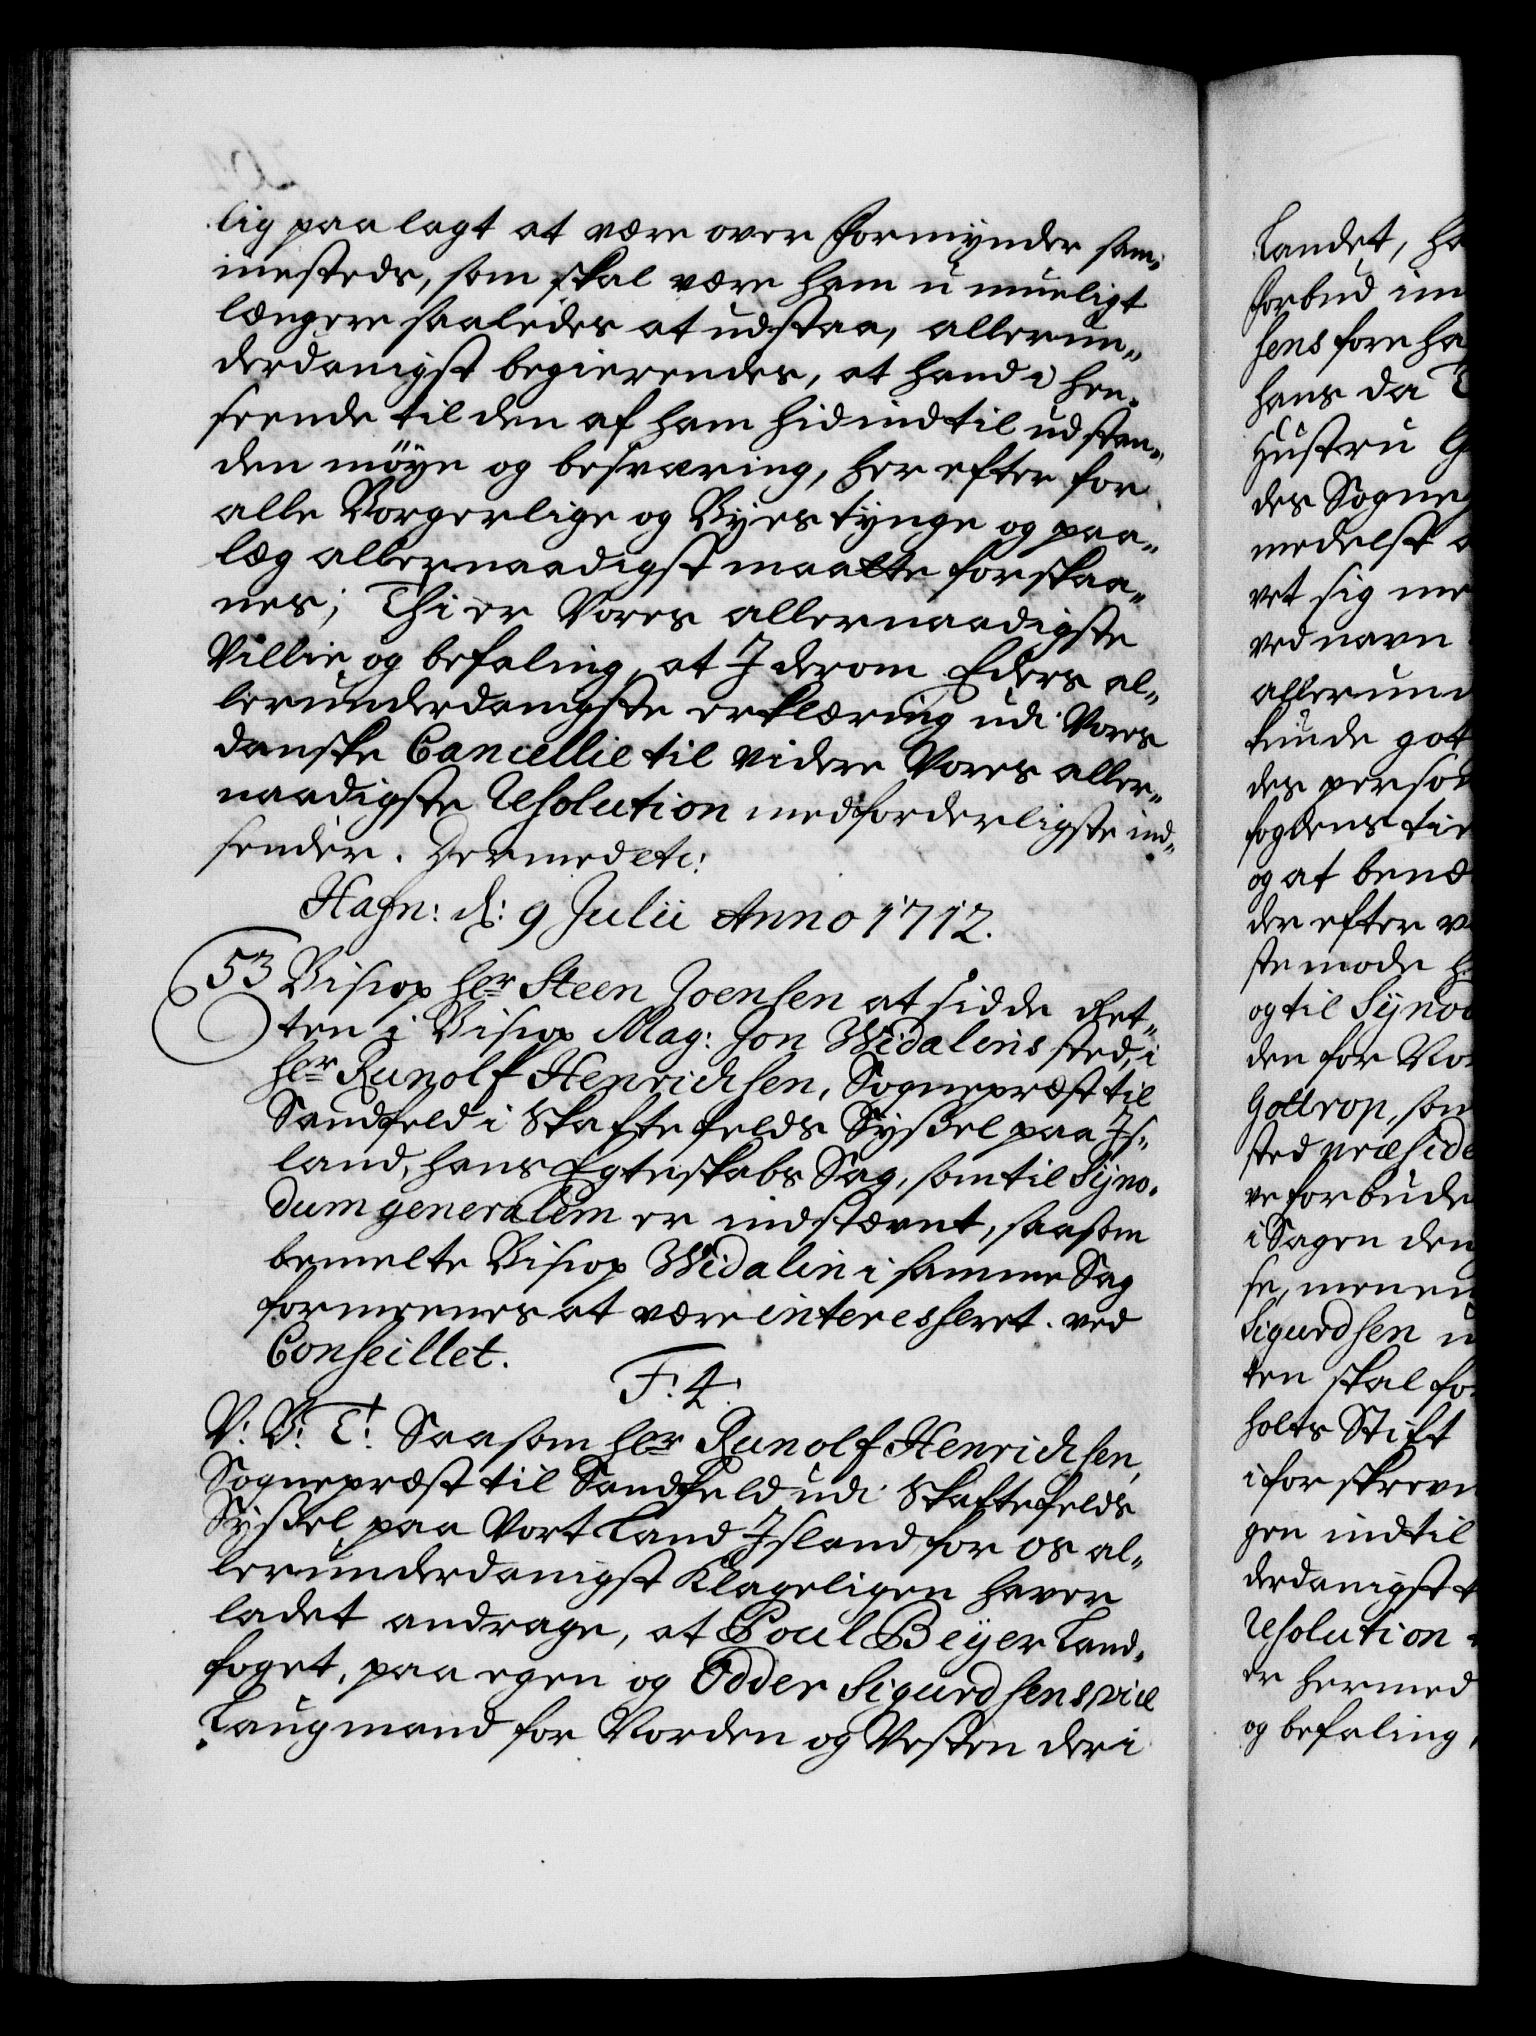 lig paa lagt at være over Formynder sam„
mesteds, som skal være ham u mueligt
længere saaledes at udstaa, allerun„
derdanigst begierendes, at hand i hen„
seende til den af ham hid indtil udstan„
den møye og besværing, her efter for
alle Borgerlige og Byes tynge og paa„
læg allernaadigst maatte forskaa„
nes; Thi er Vores allernaadigste
Villie og befaling, at I derom Eders al„
lerunderdanigste erklæring udi Vores
danske Cancellie til videre Vores aller„
naadigste Resolution medforderligste ind„
sender. Dermed etc:
Hafn: d: 9 Julii Anno 1712.
53 Biscop her Steen Joensen at sidde Ret„
ten i Biscop Mag: Jon Widalins sted, i
her Runolf Henrichsen, Sognepræst til
Sandfeld i Skaftefelds Syssel paa Is„
land, hans Egteskabs Sag, som til Syno„
dum generalem er indstævnt, saasom
bemelte Biscop Widalin i samme Sag
formeenes at være interesseret. ved
Conseillet.
F. 4.
V: B: T: Saasom her Runolf Henrichsen,
Sognepræst til Sandfeld udi Skaftefelds
Syssel paa Vort Land Island, for os al„
lerunderdanigst Klageligen haver
ladet andrage, at Poul Beyer Land„
foget, paa egen og Odder Sigurdsens vice
Laugmand for Norden og Vesten deri
Landet, ha
forbud im
sens fore ha
hans da
Hustru G
des Sogne
medelst a
vet sig me
ved navn
allerund
kunde got
des person
fogdens til
og at benæ
der efter v
ste mode h
og til Synod
den for Vo
Gottrop, som
sted præside
ve forbude
i Sagen den
se, meneu
Sigurdsen u
ten skal fo
holts Stift
i forskrevn
gen indtil
derdanigst
Resolution
er hermed
og befaling,